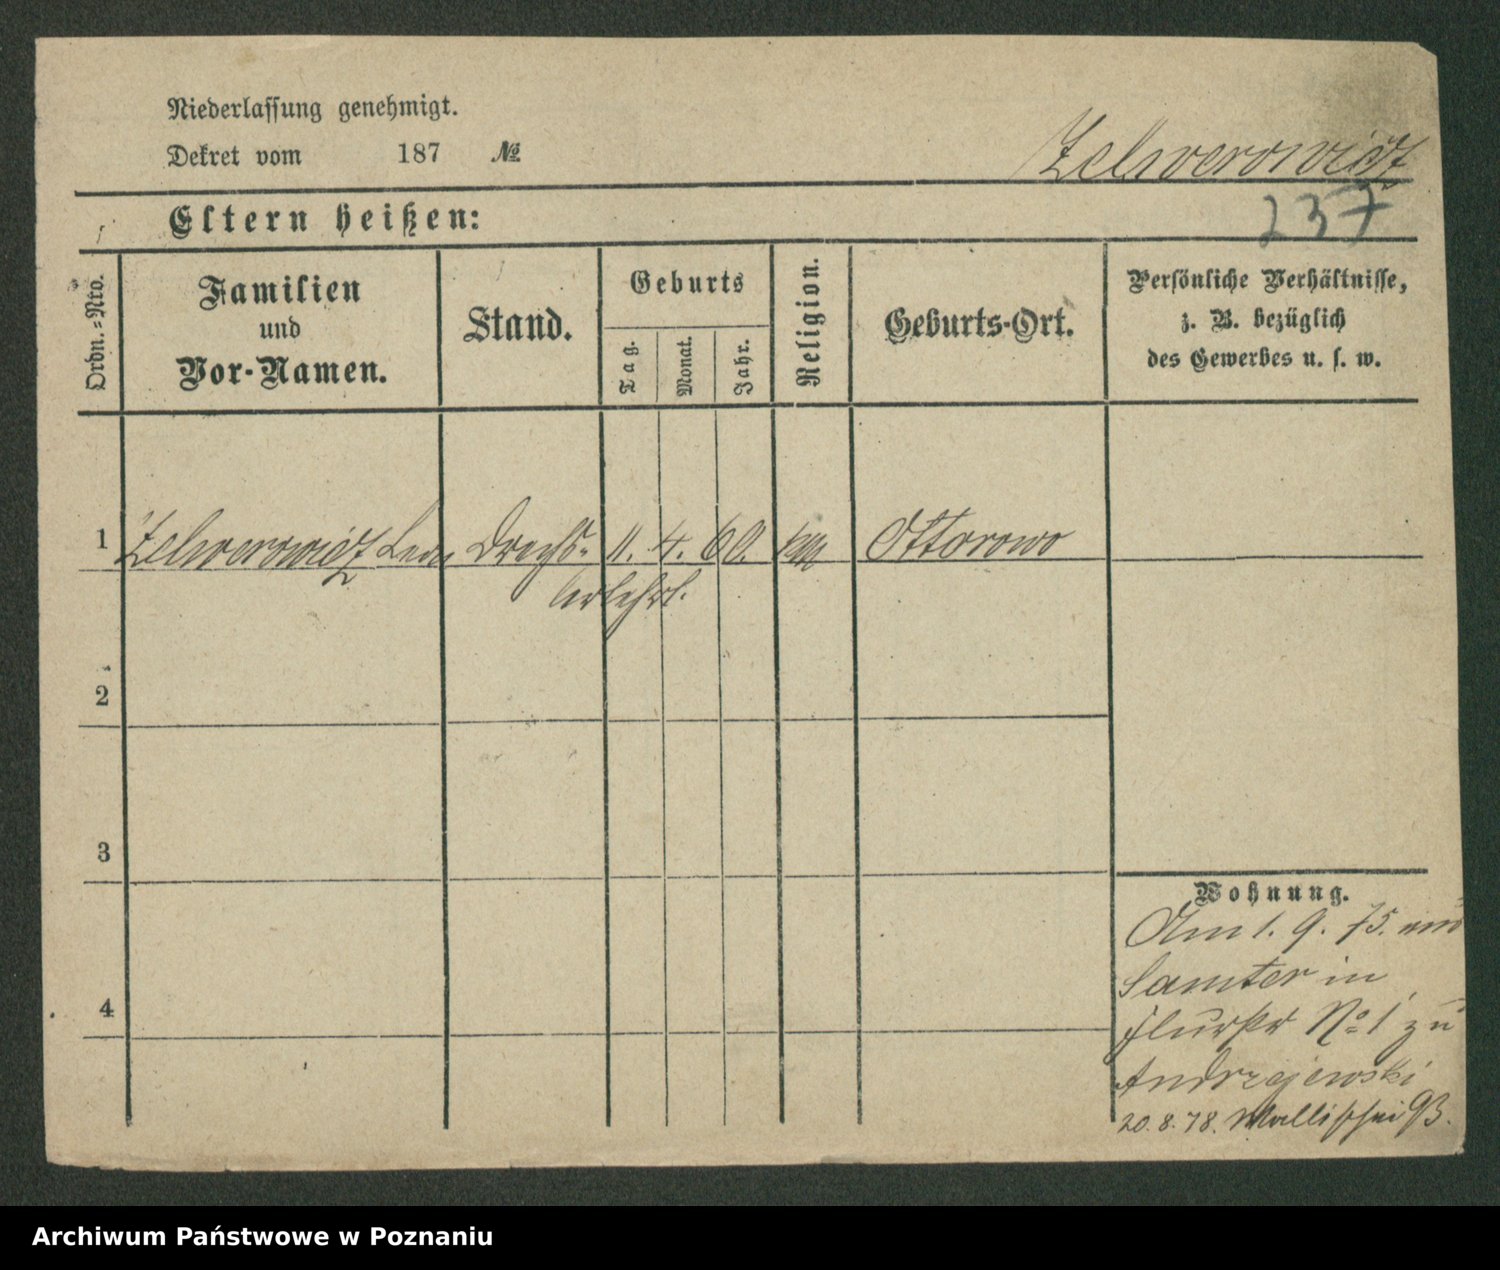 Niederlassung genehmigt.
Dekret vom 187 №
Zelwerowicz
237
Eltern heißen:
Ordn.=Nro.
Familien
und
Vor-Namen.
Stand.
Geburts
Tag.
Monat.
Jahr.
Religion.
Geburts-Ort.
Persönliche Verhältnisse,
z. B. bezüglich
des Gewerbes u. s. w.
1 Zelwerowicz Leon Drechs- 11. 4. 60. Ottorowo
lerlehrl.
2
3
Wohnung.
Am 1. 9. 75. aus
Samter in
No 1 zu
4
Andrzejewski
20. 8. 78. Wallischei 93.
Archiwum Państwowe w Poznaniu